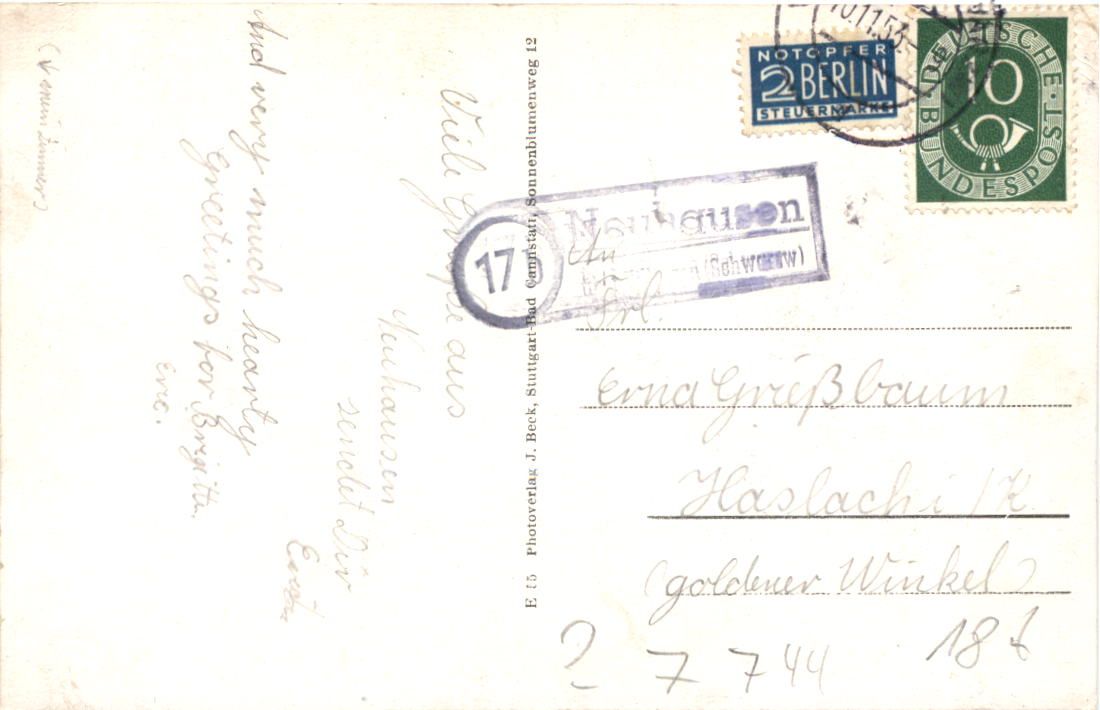 And very much hearty
Greetings for Brigitte
Viele Grüße aus
Neuhausen
sendet Dir
E 15 Photoverlag J. Beck, Stuttgart-Bad Cannstatt, Sonnenblumenweg 12
NOTOPFER
2 BERLIN
STEUERMARKE
10.11.53
DEUTSCHE BUNDESPOST
10
17b
Neuhausen
(Schwarzw)
An
Frl.
Erna Grießbaum
Haslach i/K
(goldener Winkel)
2 7 7 44 18